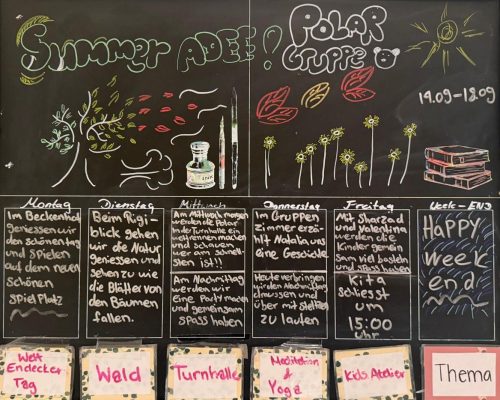 Summer ADEE!
POLAR
GRUPPE
14.09-18.09
Montag
Im Beckenhof
geniessen wir
den schönen tag
und spielen
auf dem neuen
schönen
spielplatz
Dienstag
Beim Rigi-
blick gehen
wir die Natur
geniessen und
sehen zu wie
die Blätter von
den Bäumen
fallen.
Mittwoch
Am Mittwoch morgen
werden die Polar
In der Turnhalle ein
wettrennen machen
und schauen
wer am schnell-
sten ist!!
Am Nachmittag
werden wir
eine Party machen
und gemeinsam
spass haben
Donnerstag
Im Gruppen
zimmer erzä-
hlt Natalia uns
eine Geschichte
Heute verbringen
wir den Nachmittag
draussen und
über mit stelzen
zu laufen
Freitag
Mit Sharzad
und Valentina
werden die
Kinder gemein
sam viel basteln
und spass haben
Kita
schliesst
um
15:00
uhr
HAPPY
week
end
Welt
Endecker
Tag
Wald
Turnhalle
Meditation
&
Yoga
Kids Atelier
Thema